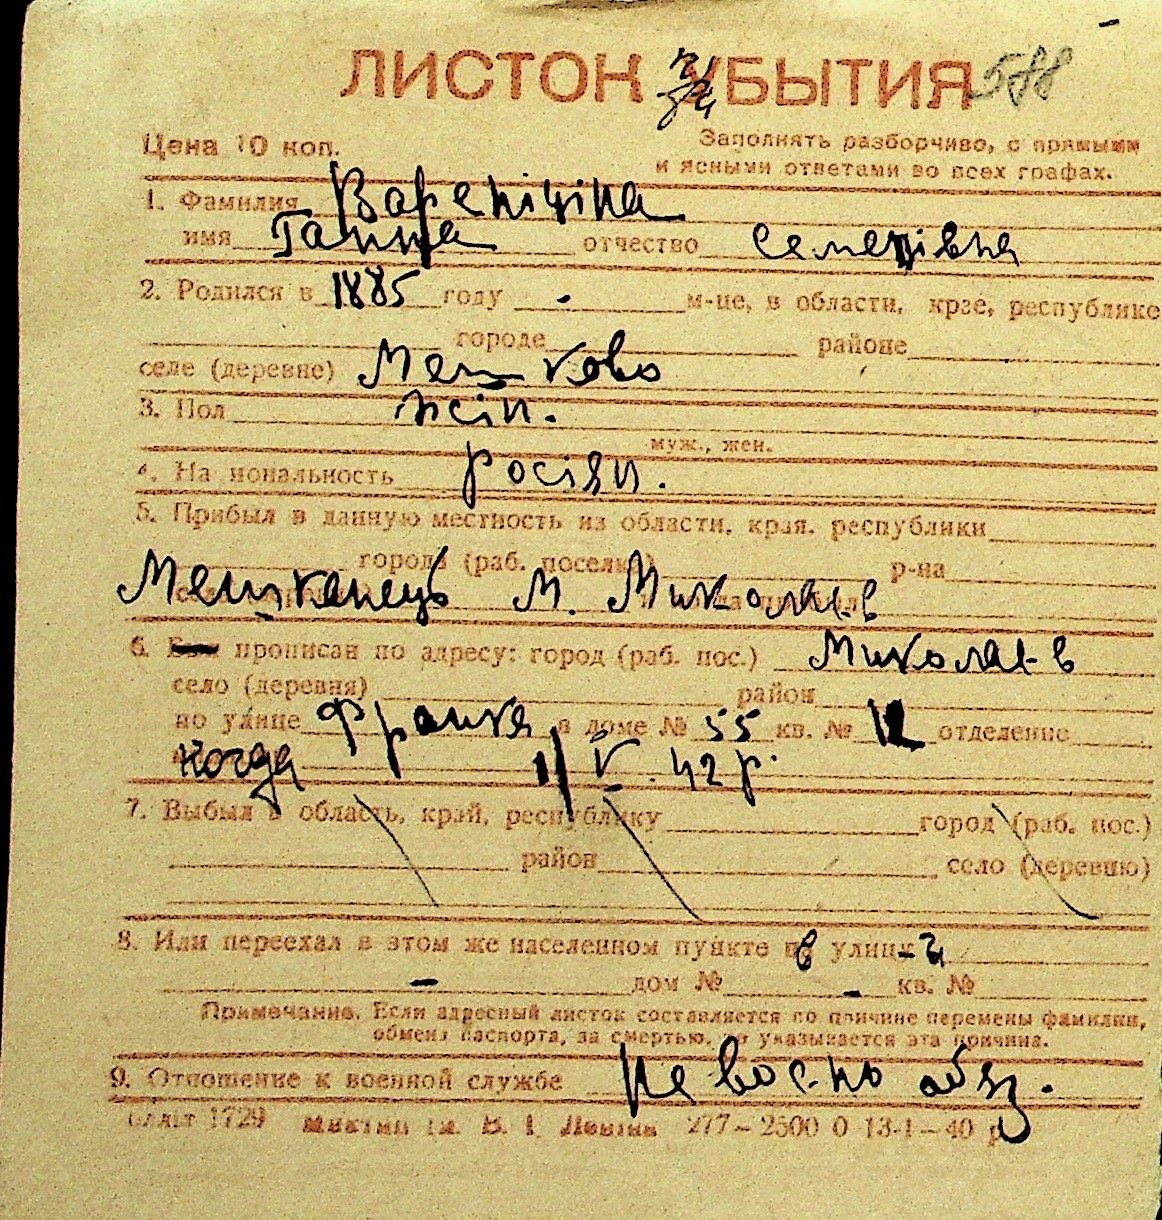 ЛИСТОК УБЫТИЯ 588
Цена 10 коп. Заполнять разборчиво, с прямыми
и ясными ответами во всех графах.
1. Фамилия Вареніціна
имя Ганна отчество Семенівна
2. Родился в 1885 году - м-це, в области, крае, республике
городе районе
селе (деревне) Мешково
3. Пол жін.
муж., жен.
4. На иональность росіян.
5. Прибыл в данную местность из области, края, республики
города (раб. поселка) р-на
Мешканець М. Миколаїв
6. прописан по адресу: город (раб. пос.) Миколаїв
село (деревня) район
по улице Франка в доме № 55 кв. № 12 отделение
когда 1/V. 42 р.
7. Выбыл в область, край, республику город (раб. пос.)
район село (деревню)
8. Или переехал в этом же населенном пункте в улиц
- дом № - кв. №
Примечание. Если адресный листок составляется по причине перемены фамилии,
обмена паспорта, за смертью, то указывается эта причина.
9. Отношение к военной службе не воен-но обяз.
1729 В. І. Леніна 277-2500 0 13-1-40 р